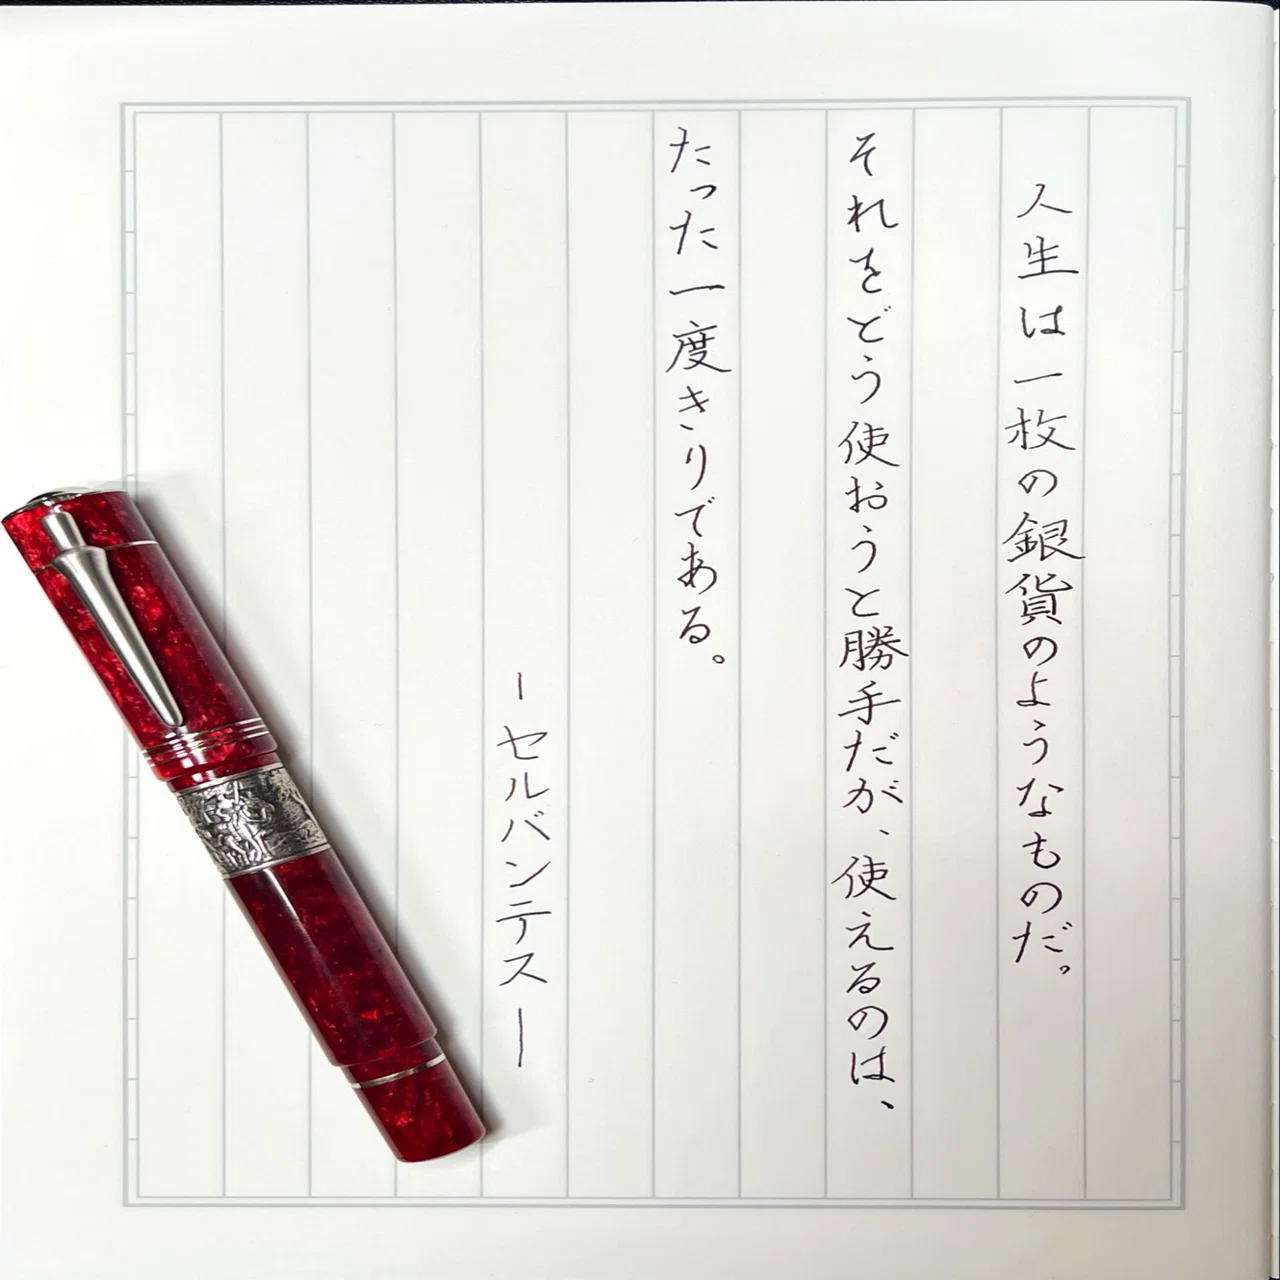 人生は一枚の銀貨のようなものだ。
それをどう使おうと勝手だが、使えるのは、
たった一度きりである。
ーセルバンテスー